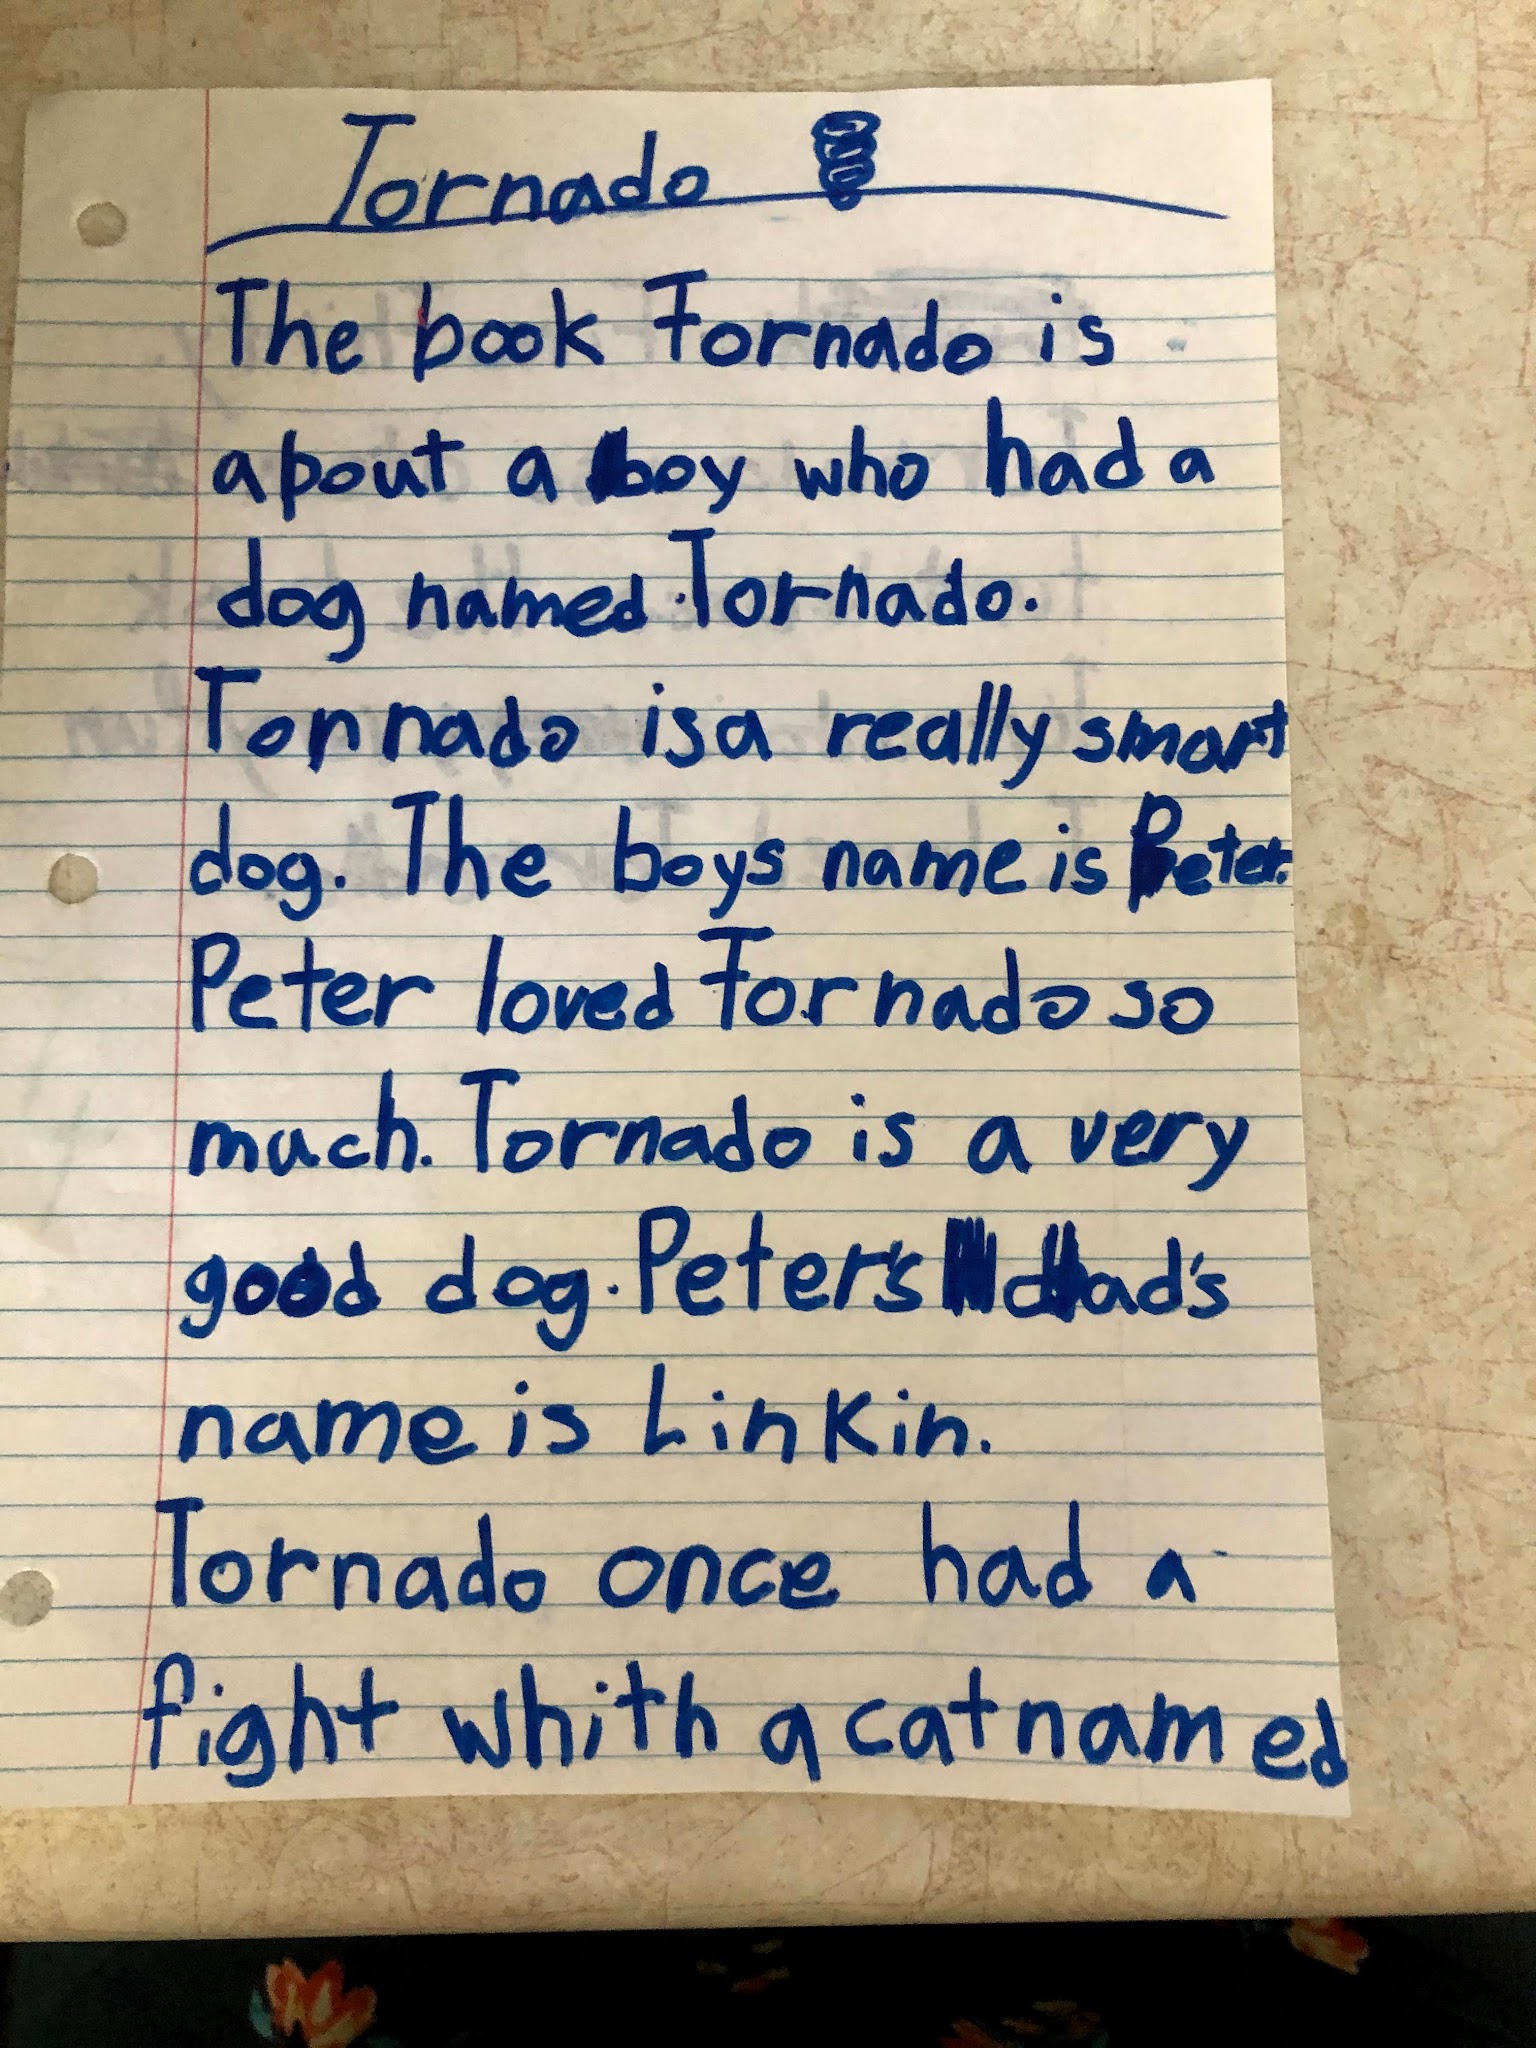 Tornado
The book Tornado is
about a boy who had a
dog named Tornado.
Tornado is a really smart
dog. The boys name is Peter.
Peter loved Tornado so
much. Tornado is a very
good dog. Peter's dad's
name is Linkin.
Tornado once had a
fight whith a cat named